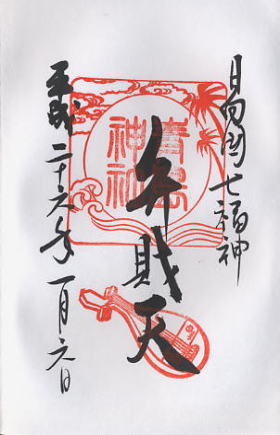 日向国七福神
弁財天
青島
神社
平成二十六年一月六日